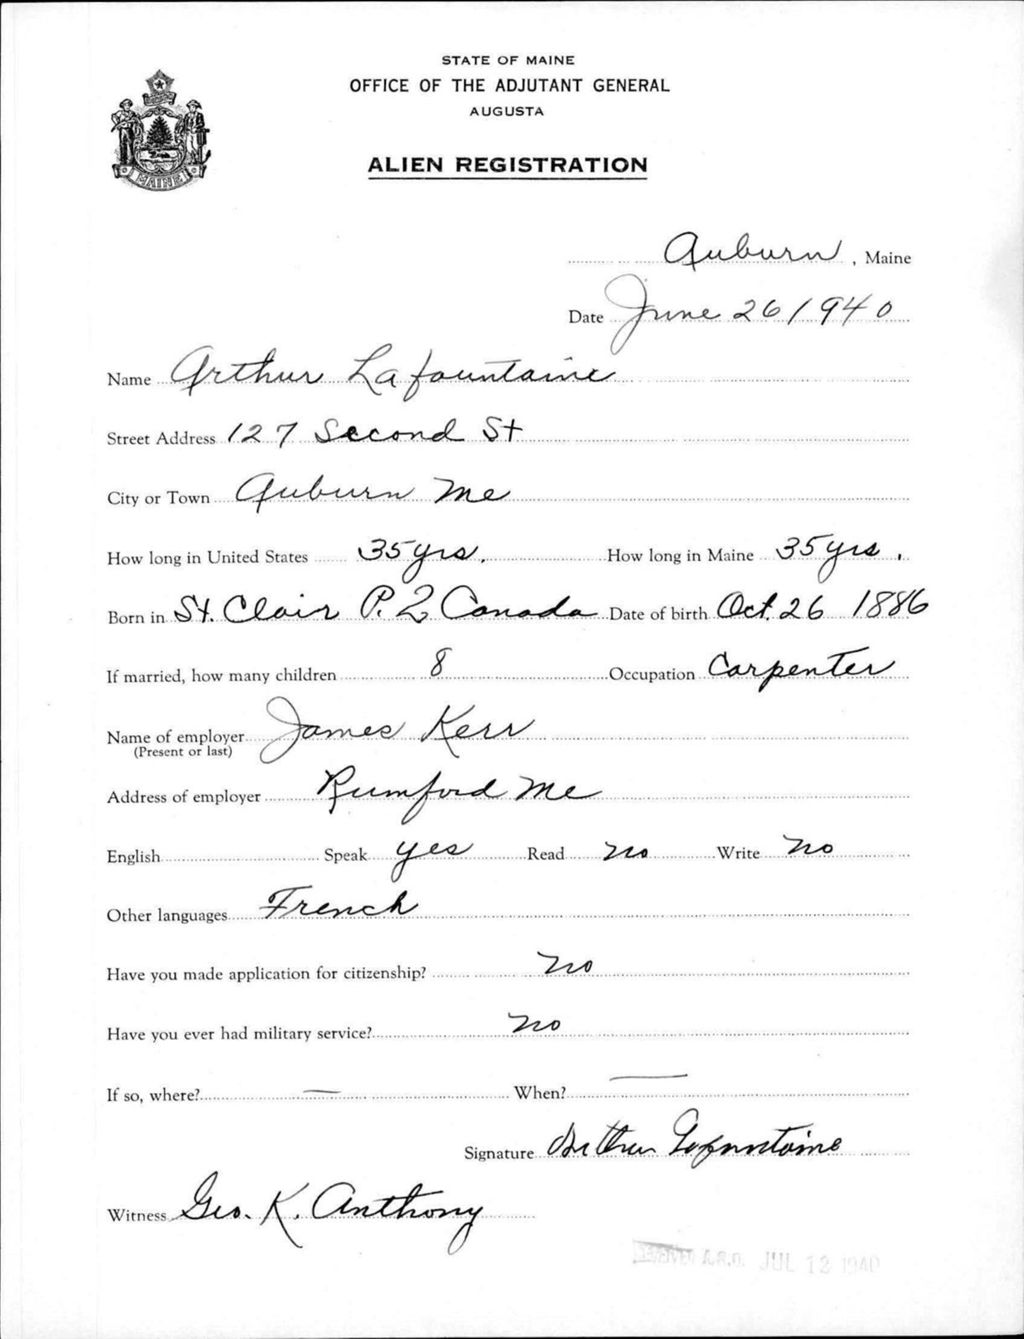 STATE OF MAINE
OFFICE OF THE ADJUTANT GENERAL
AUGUSTA
ALIEN REGISTRATION
MAINE
Auburn, Maine
Date June 26 1940
Name Arthur Lafountaine
Street Address 127 Second St
City or Town Auburn Me
How long in United States 35 yrs. How long in Maine 35 yrs.
Born in St. Clair P.Q Canada Date of birth Oct. 26 1886
If married, how many children 8 Occupation Carpenter
Name of employer James Kerr
(Present or last)
Address of employer Rumford Me
English Speak yes Read no Write no
Other languages French
Have you made application for citizenship? no
Have you ever had military service? no
If so, where? — When? —
Signature Arthur Lafountaine
Witness Geo. K. Anthony
RECEIVED A.G.O. JUL 12 1940